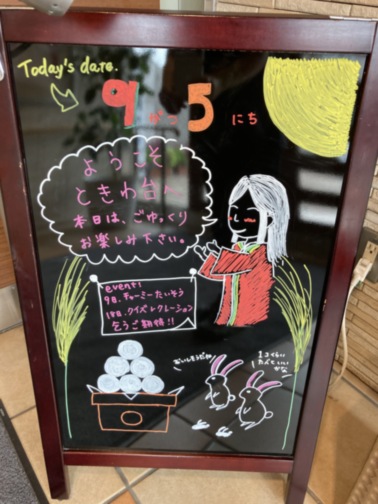 Today's date.
9 がつ 5 にち
ようこそ
ときわ台へ
本日は、ごゆっくり
お楽しみ下さい。
event!
9日.チャーミーたいそう
18日.クイズレクレーション
乞うご期待!!
おいしそうだね
1コくらい
たべてもいい
かな